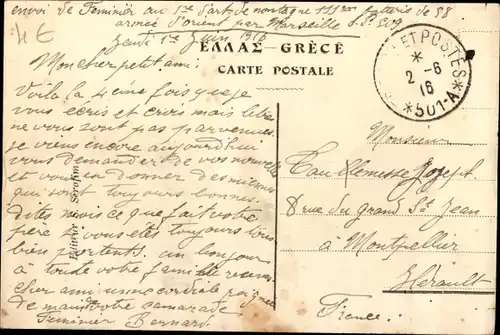 envoi de Feminier au 1er d'art de montagne 115me batterie de 58
armée d'orient par Marseille S.P. 509
4 €
Jeudi 1er Juin 1916
ΕΛΛΑΣ-GRÈCE
CARTE POSTALE
TRESOR ET POSTES
* 2-6 16
*501-A*
Mon cher petit ami
Voila la 4eme fois que je
vous écris et crois mais lettres
ne vous sont pas parvenues
je viens encore aujourd'hui
vous demander de vos nouvelles
et vous en donner des miennes
qui sont toujours bonnes.
Dites mois ce que fait votre
père si vous êtes toujours tous
bien portents. un bonjour
à toute votre famille recevez
cher ami une cordiale poignée
de main de votre camarade
Feminier Bernard
Editeur Serafim
Monsieur
Joseph
8 rue du Grand St Jean
à Montpellier
Hérault
France